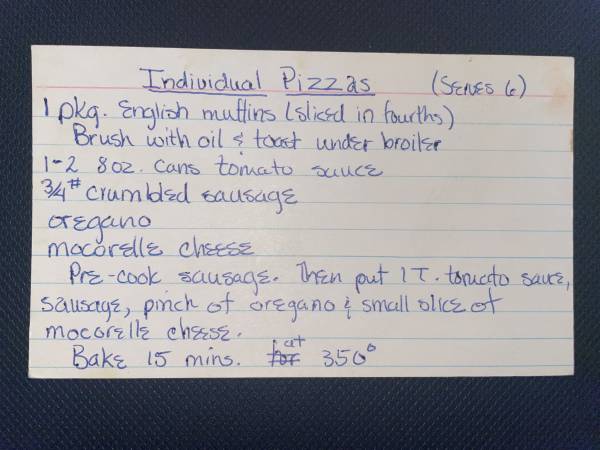 Individual Pizzas (Serves 6)
1 pkg. English muffins (sliced in fourths)
Brush with oil & toast under broiler
1-2 8oz. cans tomato sauce
3/4# crumbled sausage
oregano
mocorelle cheese
Pre-cook sausage. Then put 1 T. tomato sauce,
sausage, pinch of oregano & small slice of
mocorelle cheese.
Bake 15 mins. at 350°